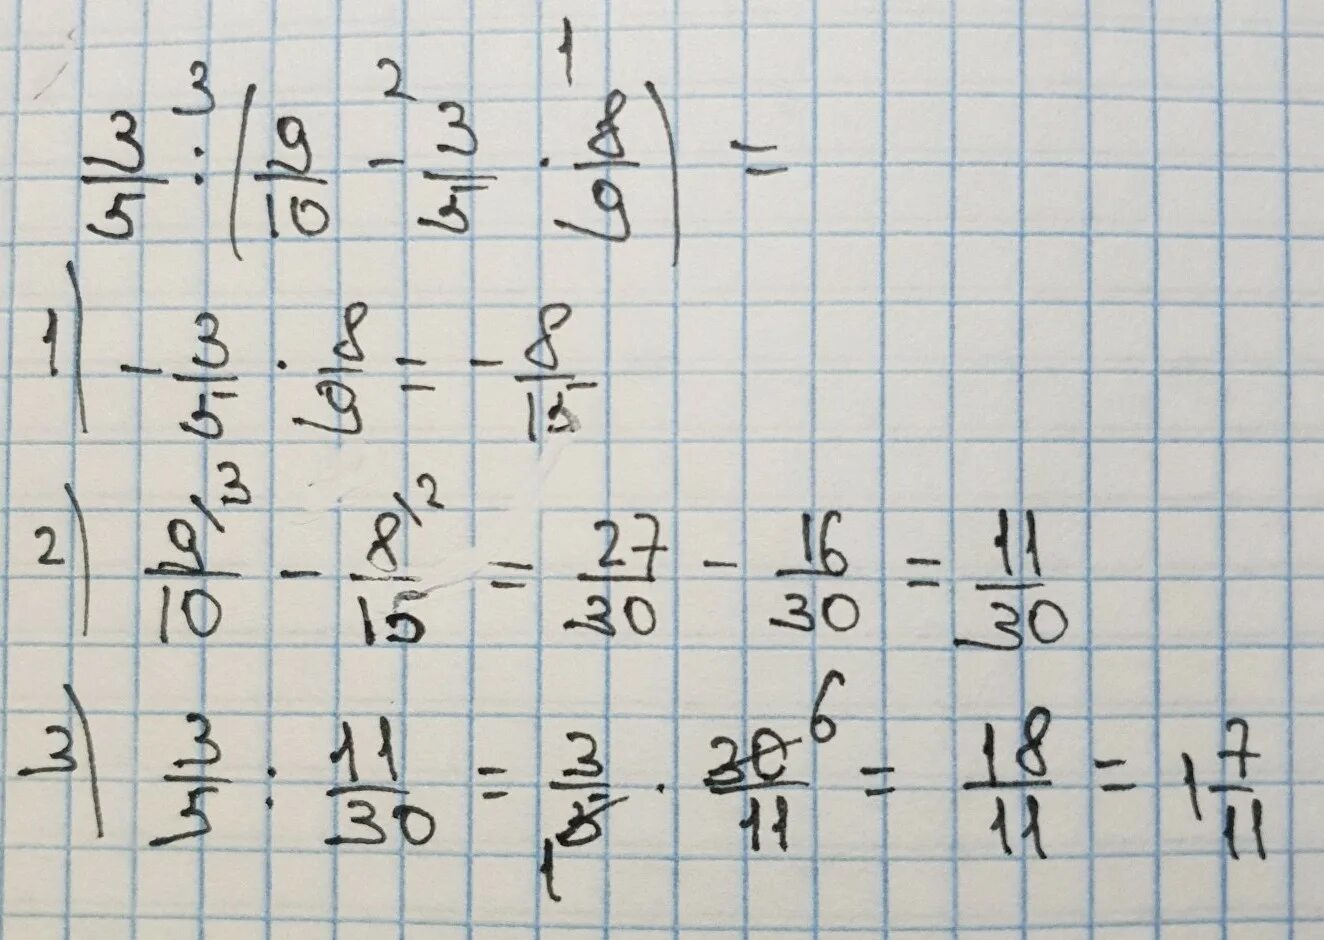 3/5 : (9/10 - 3/5 · 8/9) =
3 2 1
1) - 3/5 · 8/9 = - 8/15
2) 9/10 /3 - 8/15 /2 = 27/30 - 16/30 = 11/30
3) 3/5 : 11/30 = 3/5 1 · 30/11 6 = 18/11 = 1 7/11